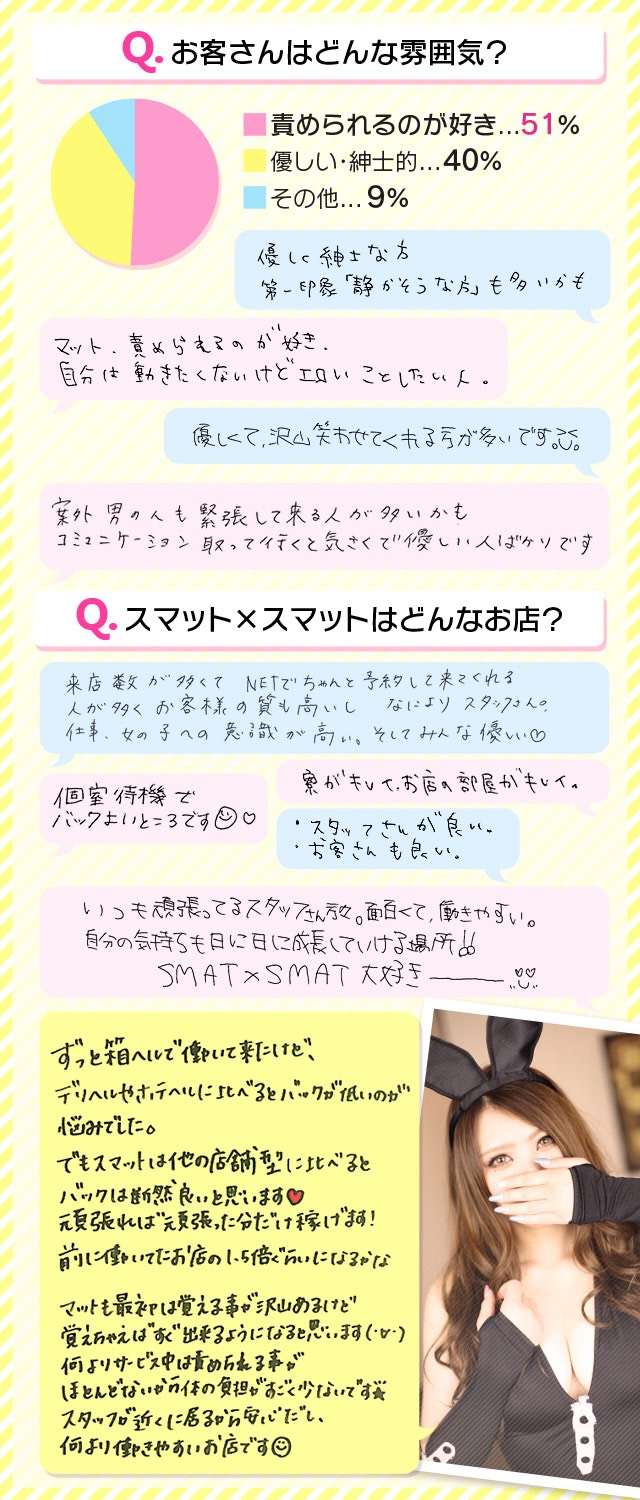 Q. お客さんはどんな雰囲気？
責められるのが好き…51%
優しい・紳士的…40%
その他…9%
優しく紳士な方
第一印象「静かそうな方」も多いかも
マット、責められるのが好き、
自分は動きたくないけどエロいことしたい人。
優しくて、沢山笑わせてくれる方が多いです。
案外男の人も緊張して来る人が多いかも
コミュニケーション取って行くと気さくで優しい人ばケソです
Q. スマット×スマットはどんなお店？
来店数が多くて NETでちゃんと予約して来てくれる
人が多くお客様の質も高いし なにより スタッフさんの
仕事、女の子への意識が高い。そしてみんな優しい♡
個室待機で
バックよいところです☺♡
寮がキレイ、お店の部屋がキレイ。
・スタッフさんが良い。
・お客さんも良い。
いつも頑張ってるスタッフさん達。面白くて、働きやすい。
自分の気持ちも日に日に成長していける場所!!
SMAT×SMAT 大好きーーー
ずっと箱ヘルで働いて来たけど、
デリヘルやホテヘルに比べるとバックが低いのが
悩みでした。
でもスマットは他の店舗型に比べると
バックは断然良いと思います♥
頑張れば頑張った分だけ稼げます!
前に働いてたお店の1.5倍ぐらいになるかな
マットも最初は覚える事が沢山あるけど
覚えちゃえばすぐ出来るようになると思います(・∀・)
何よりサービス中は責められる事が
ほとんどないから体の負担がすごく少ないです☆
スタッフが近くに居るから安心だし、
何より働きやすいお店です☺